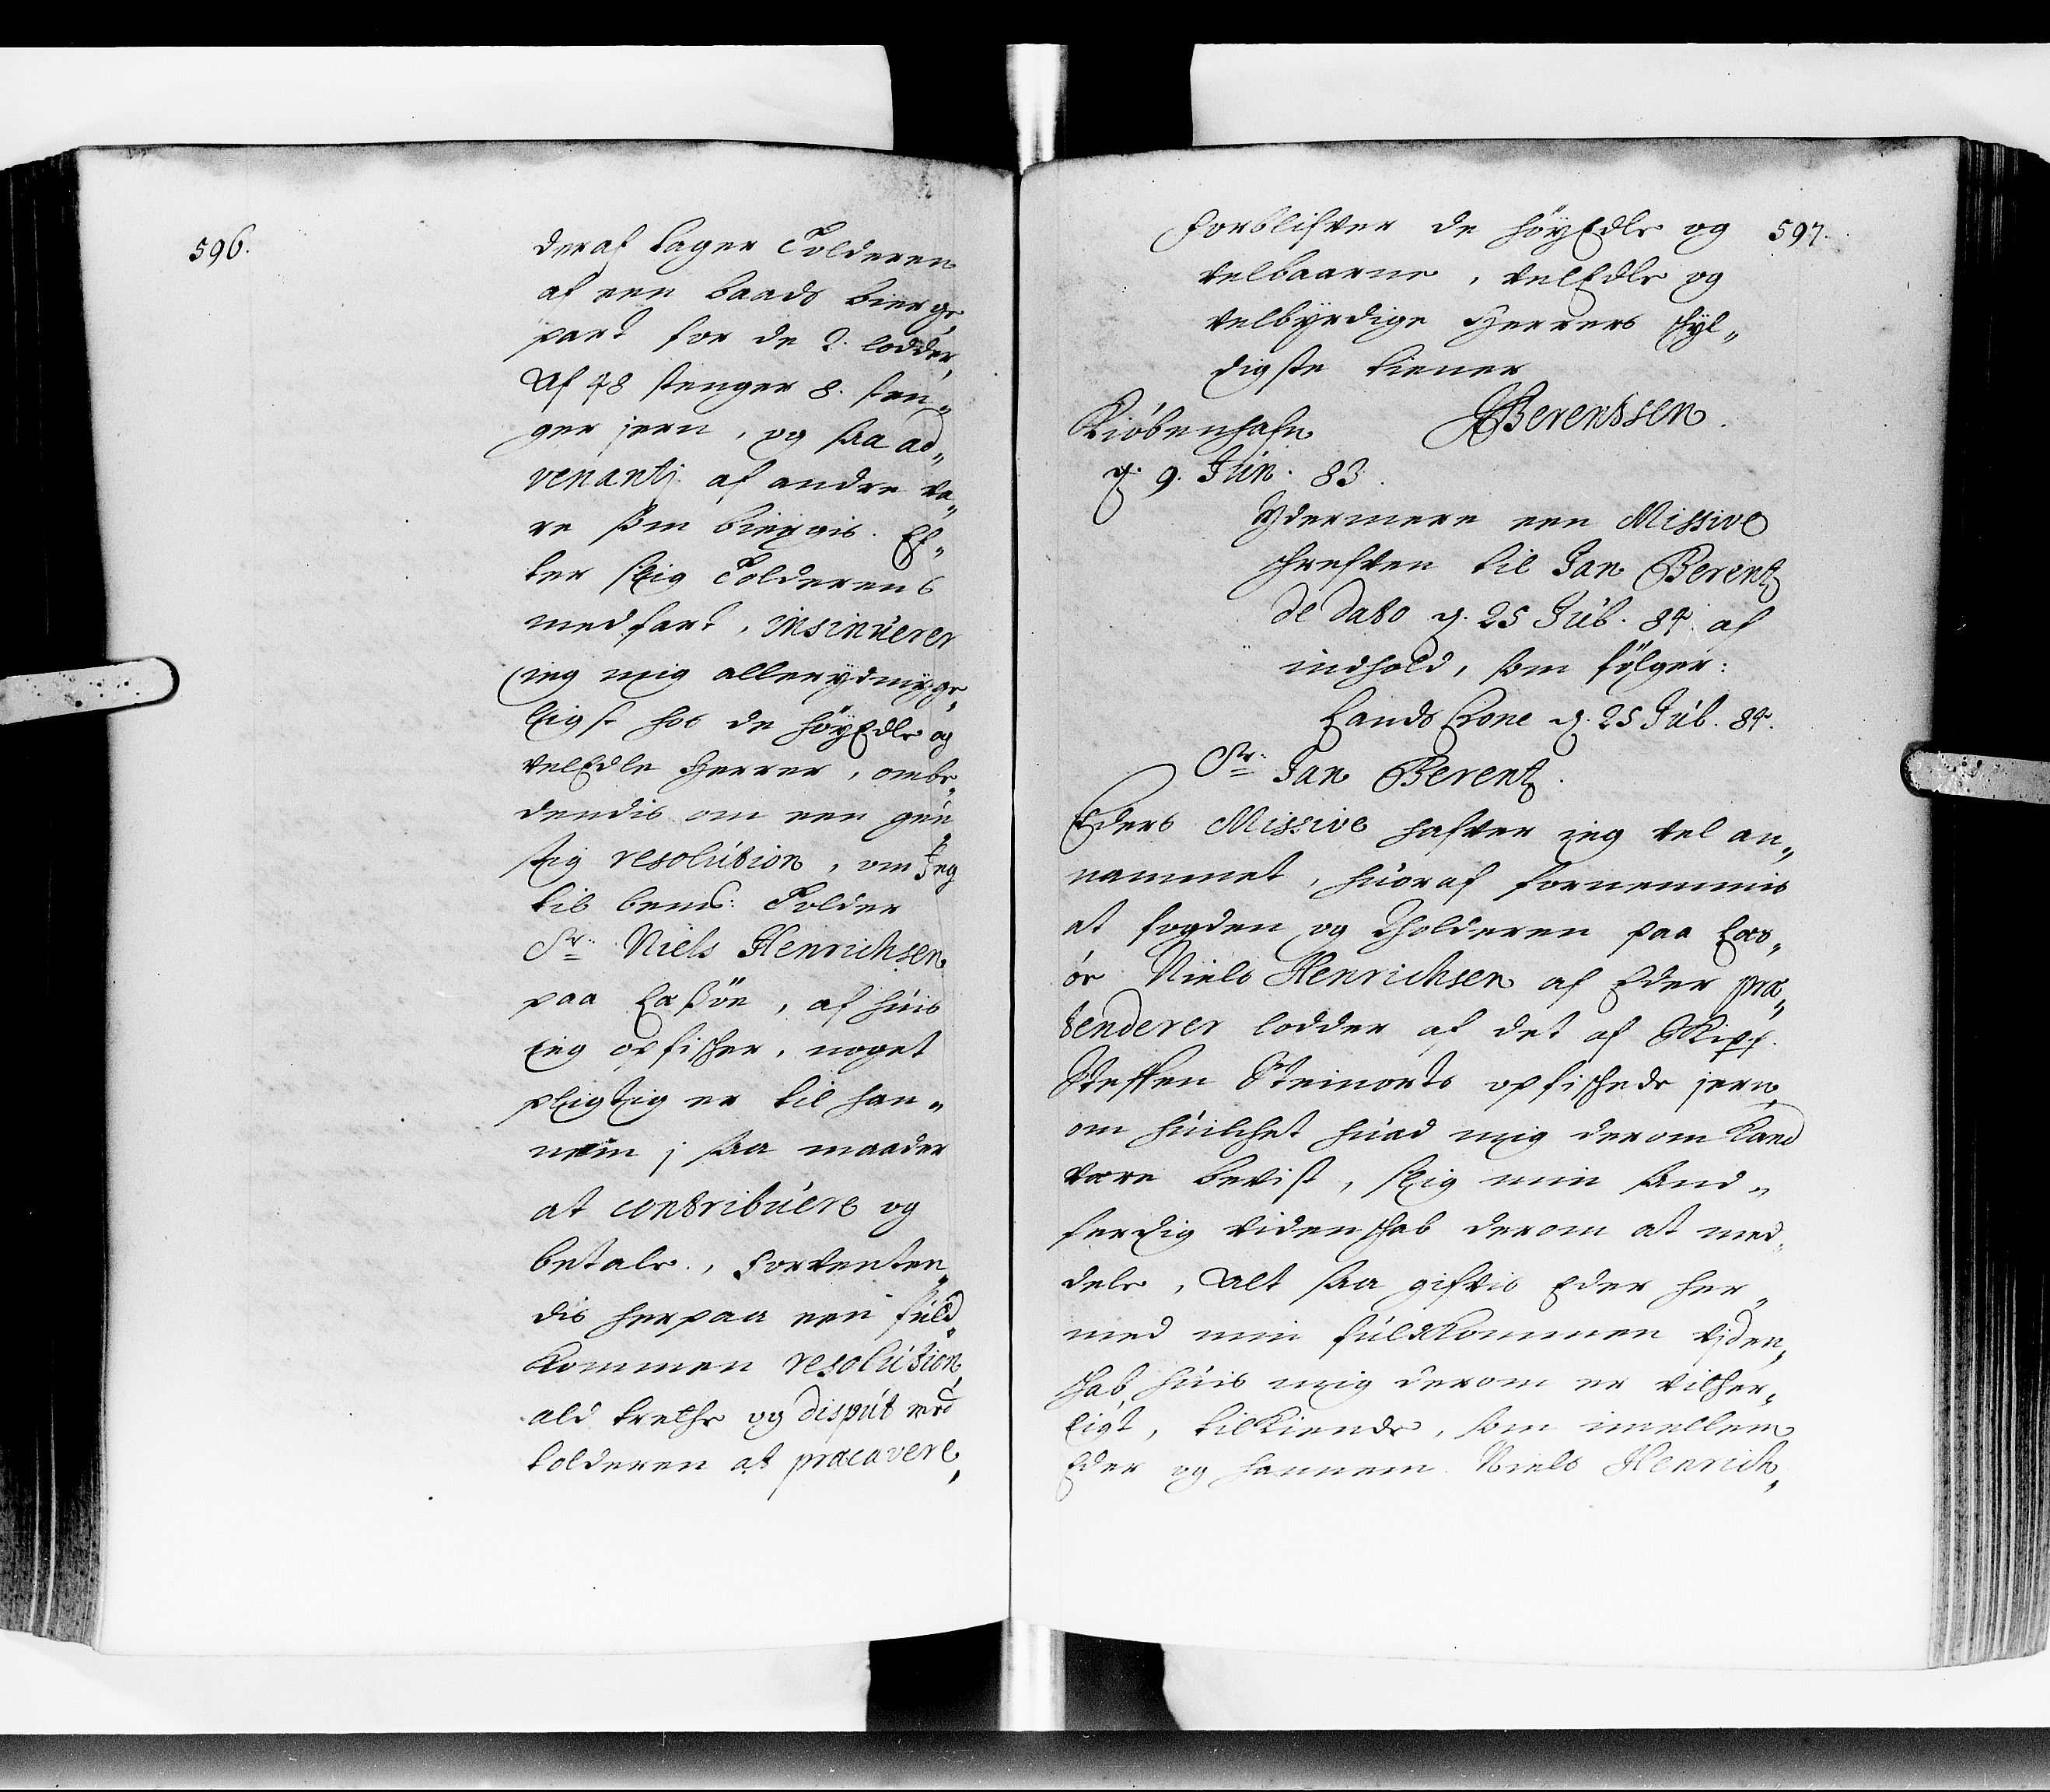 596.
deraf tager Tolderen
af een baads bierge
part for de 2. lodder,
Af 48 stenger 8. sten„
ger jern, og saa ad„
venantj af andre va„
re som biergis. Ef„
ter slig Tolderens
medfart, insinuerer
jeg mig allerydmyge„
ligst hos de höyEdle og
velEdle Herrer, ombe„
dendis om een gun„
stig resolution, om Jeg
til bemt: Tolder
Sr. Niels Henrichsen
paa Læssöe, af huis
jeg opfischer, noget
pligtig er til han„
nem j saa maader
at contribuere og
betale, forventen„
dis herpaa een fuld„
kommen resolution,
ald trette og disput med
tolderen at præcavere,
597.
Forblifver de höyEdle og
velbaarne, velEdle og
velbyrdige Herrers skyl„
digste tiener
Kiöbenhafn JBerentssen.
d. 9. Jun. 83.
Ydermere een Missive
skrefven til Jan Berentz
de dato d. 25 Jul. 84 af
indhold, som fölger:
Lands Crone d. 25 Jul. 84.
Sr. Jan Berentz.
Eders Missive hafver jeg vel an„
nammet, huoraf fornemmis
at fogden og Tholderen paa Læs„
öe Niels Henrichsen af Eder præ„
tenderer lodder af det af Skipp.
Steffen Steinorts opfischede jern,
om huilchet huad mig derom kand
være bevist, slig min sand„
ferdig videnschab derom at med„
dele, Alt saa gifvis Eder her„
med min fuldkommen viden„
schab, huis mig derom er vitter„
ligt, tilkiende, som imellem
Eder og hannem Niels Henrich„